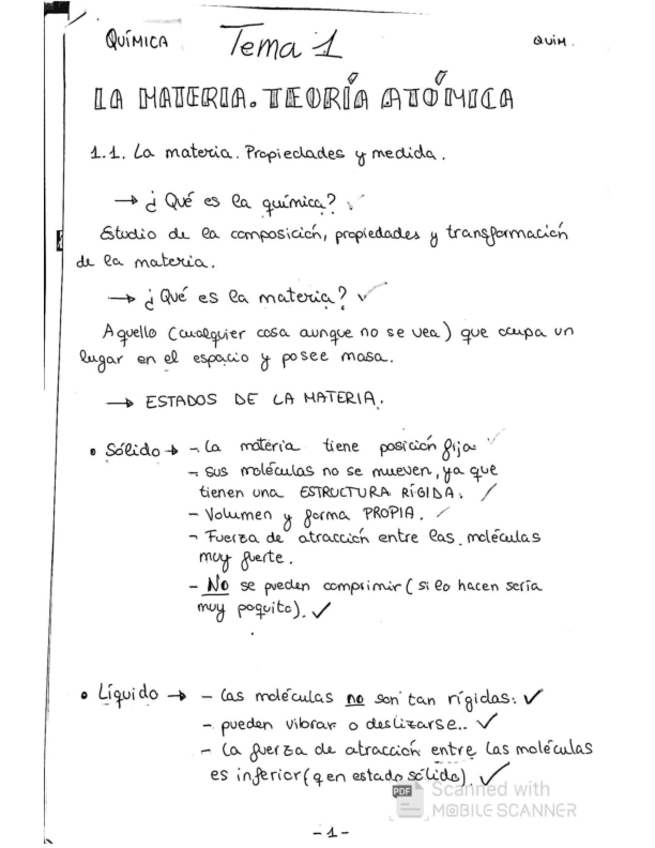 QUÍMICA Tema 1 QUÍM.
LA MATERIA. TEORÍA ATÓMICA
1.1. La materia. Propiedades y medida.
→ ¿Qué es la química? ✓
Estudio de la composición, propiedades y transformación
de la materia.
→ ¿Qué es la materia? ✓
Aquello (cualquier cosa aunque no se vea) que ocupa un
lugar en el espacio y posee masa.
→ ESTADOS DE LA MATERIA.
• Sólido → - La materia tiene posición fija ✓
- sus moléculas no se mueven, ya que
tienen una ESTRUCTURA RÍGIDA. ✓
- Volumen y forma PROPIA. ✓
- Fuerza de atracción entre las moléculas
muy fuerte.
- NO se pueden comprimir (si lo hacen sería
muy poquito). ✓
• Líquido → - Las moléculas no son tan rígidas: ✓
- pueden vibrar o deslizarse.. ✓
- La fuerza de atracción entre las moléculas
es inferior (q en estado sólido). ✓
PDF Scanned with
MOBILE SCANNER
- 1 -